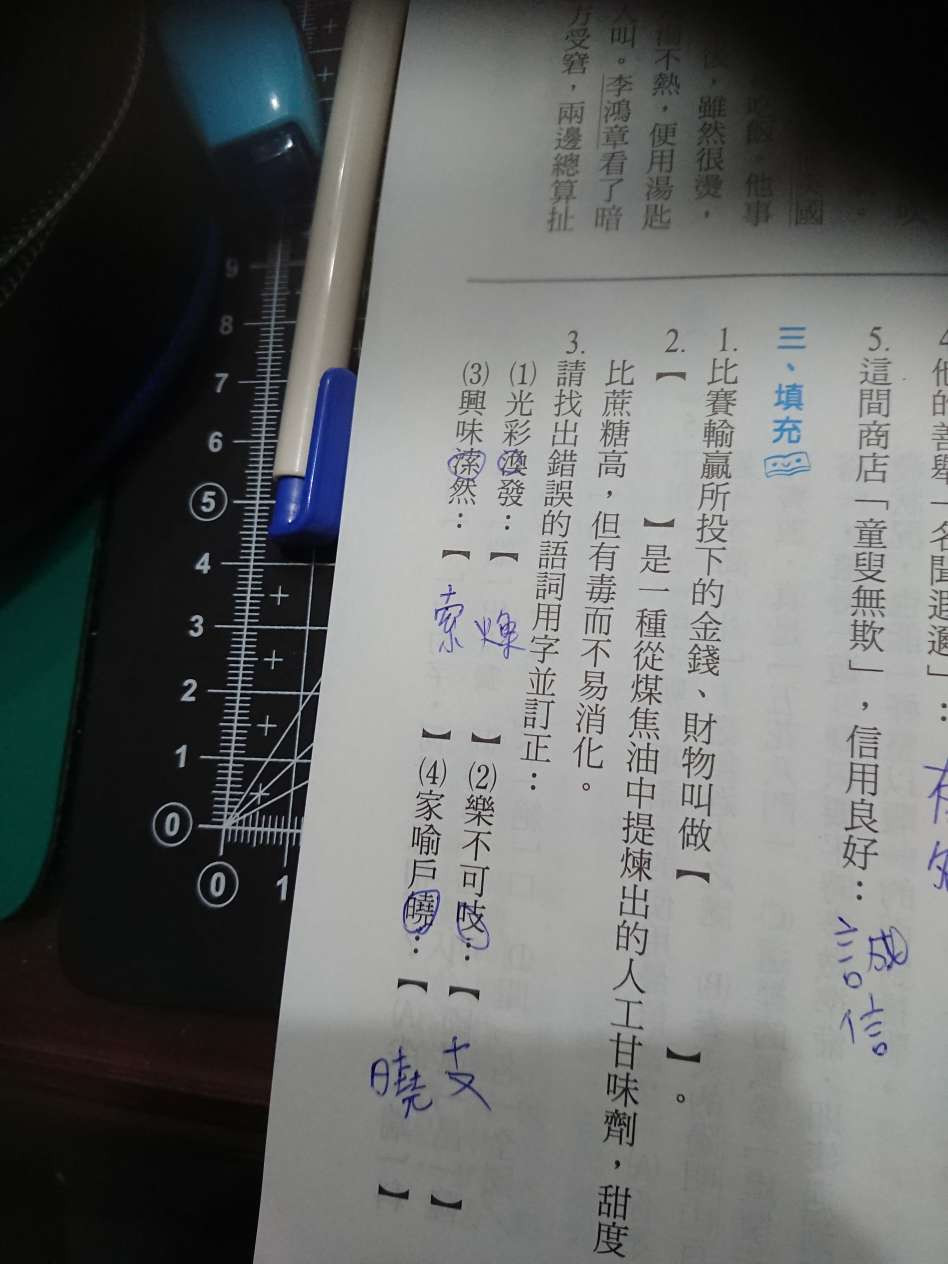 國
吃飯。他事
雖然很燙,
不熱,便用湯匙
叫。李鴻章看了暗
方受窘,兩邊總算扯
他的善舉「名聞遐邇」:
5.這間商店「童叟無欺」,信用良好:誠信
三、填充
1.比賽輸贏所投下的金錢、財物叫做【 】。
2.【 】是一種從煤焦油中提煉出的人工甘味劑,甜度
比蔗糖高,但有毒而不易消化。
3.請找出錯誤的語詞用字並訂正:
⑴光彩渙發:【 】⑵樂不可吱:【支】
⑶興味溹然:【索】⑷家喻戶曉:【曉】
9
8
7
6
5
4
3
2
1
0
0 1